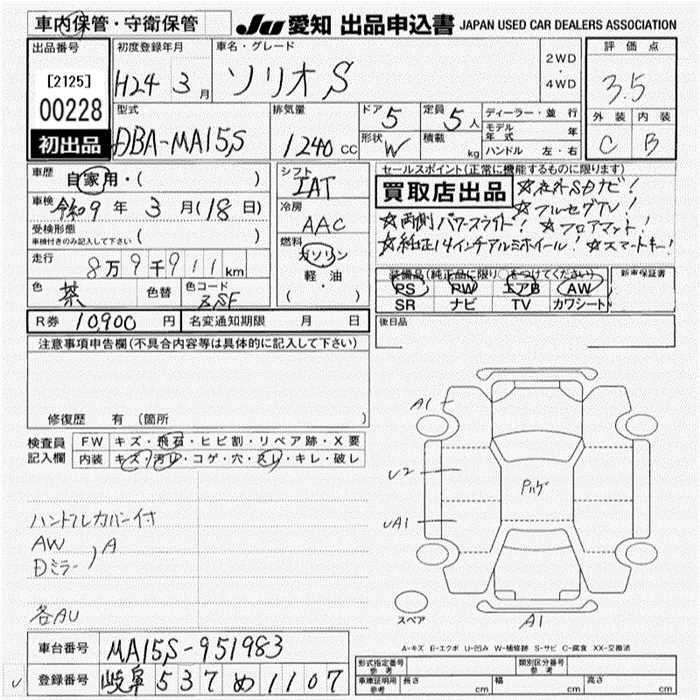 車内保管・守衛保管
JU 愛知 出品申込書 JAPAN USED CAR DEALERS ASSOCIATION
出品番号
[2125]
00228
初出品
初度登録年月
H24年3月
車名・グレード
ソリオS
2WD
・
4WD
評価点
3.5
外装 内装
C B
型式
DBA-MA15S
排気量
1240 CC
ドア 5
形状 W
定員 5人
積載 kg
ディーラー・並行
モデル年式 年
ハンドル 左・右
車歴
自家用・( )
車検 令和9年3月(18日)
受検形態
車検付きのみ記入して下さい ( )
走行
8万9千911km
色 茶 色替 色コード ZSF
シフト
IAT
冷房
AAC
燃料
ガソリン
軽・油
( ・ )
セールスポイント(正常に機能するものに限ります)
買取店出品 ☆社外SDナビ!
☆フルセグTV!
☆両側パワースライド! ☆フロアマット!
☆純正14インチアルミホイール! ☆スマートキー!
装備品(純正品に限り○をつけてください)
PS PW エアB AW
SR ナビ TV カワシート
新車保証書
R券 10,900円 名変通知期限 月 日
後日品
注意事項申告欄(不具合内容等は具体的に記入して下さい)
修復歴 有 (箇所 )
検査員
記入欄
FW キズ・飛石・ヒビ割・リペア跡・X要
内装 キズ・汚レ・コゲ・穴・スレ・キレ・破レ
ハンドルカバー付
AW
Dミラー ) A
各AU
A1
U2
UA1
Pハゲ
A1
スペア
A-キズ E-エクボ U-凹み W-補修跡 S-サビ C-腐食 XX-交換済
車台番号 MA15S-951983
登録番号 岐阜 537 め 1107
形式指定番号 参考
類別区分番号 参考
車庫証明用 参考 長さ cm 幅 cm 高さ cm